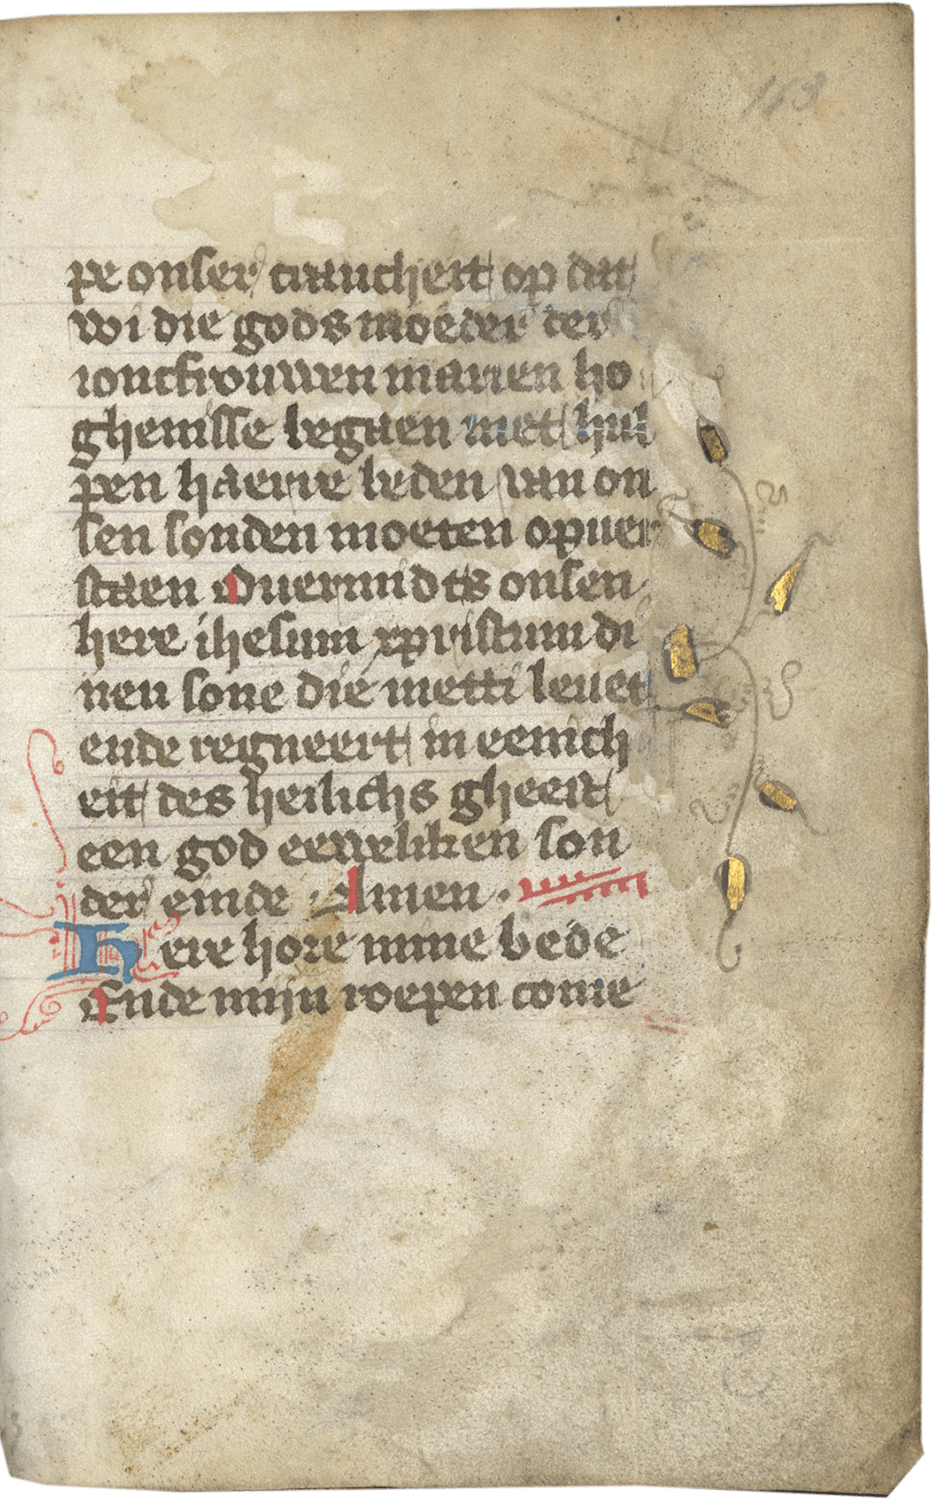 143
pe onser crancheit op dat
wi die gods moeder der
ioncfrouwen marien ho
ghenisse begaen met hul
pen haerre beden van on
sen sonden moeten opuer
staen Ouermidts onsen
here ihesum xpristum di
nen sone die metti leuet
ende regneert in eenich
eit des heilichs gheest
een god eeweliken son
der einde . Amen .
Here hore mine bede
Ende mijn roepen come